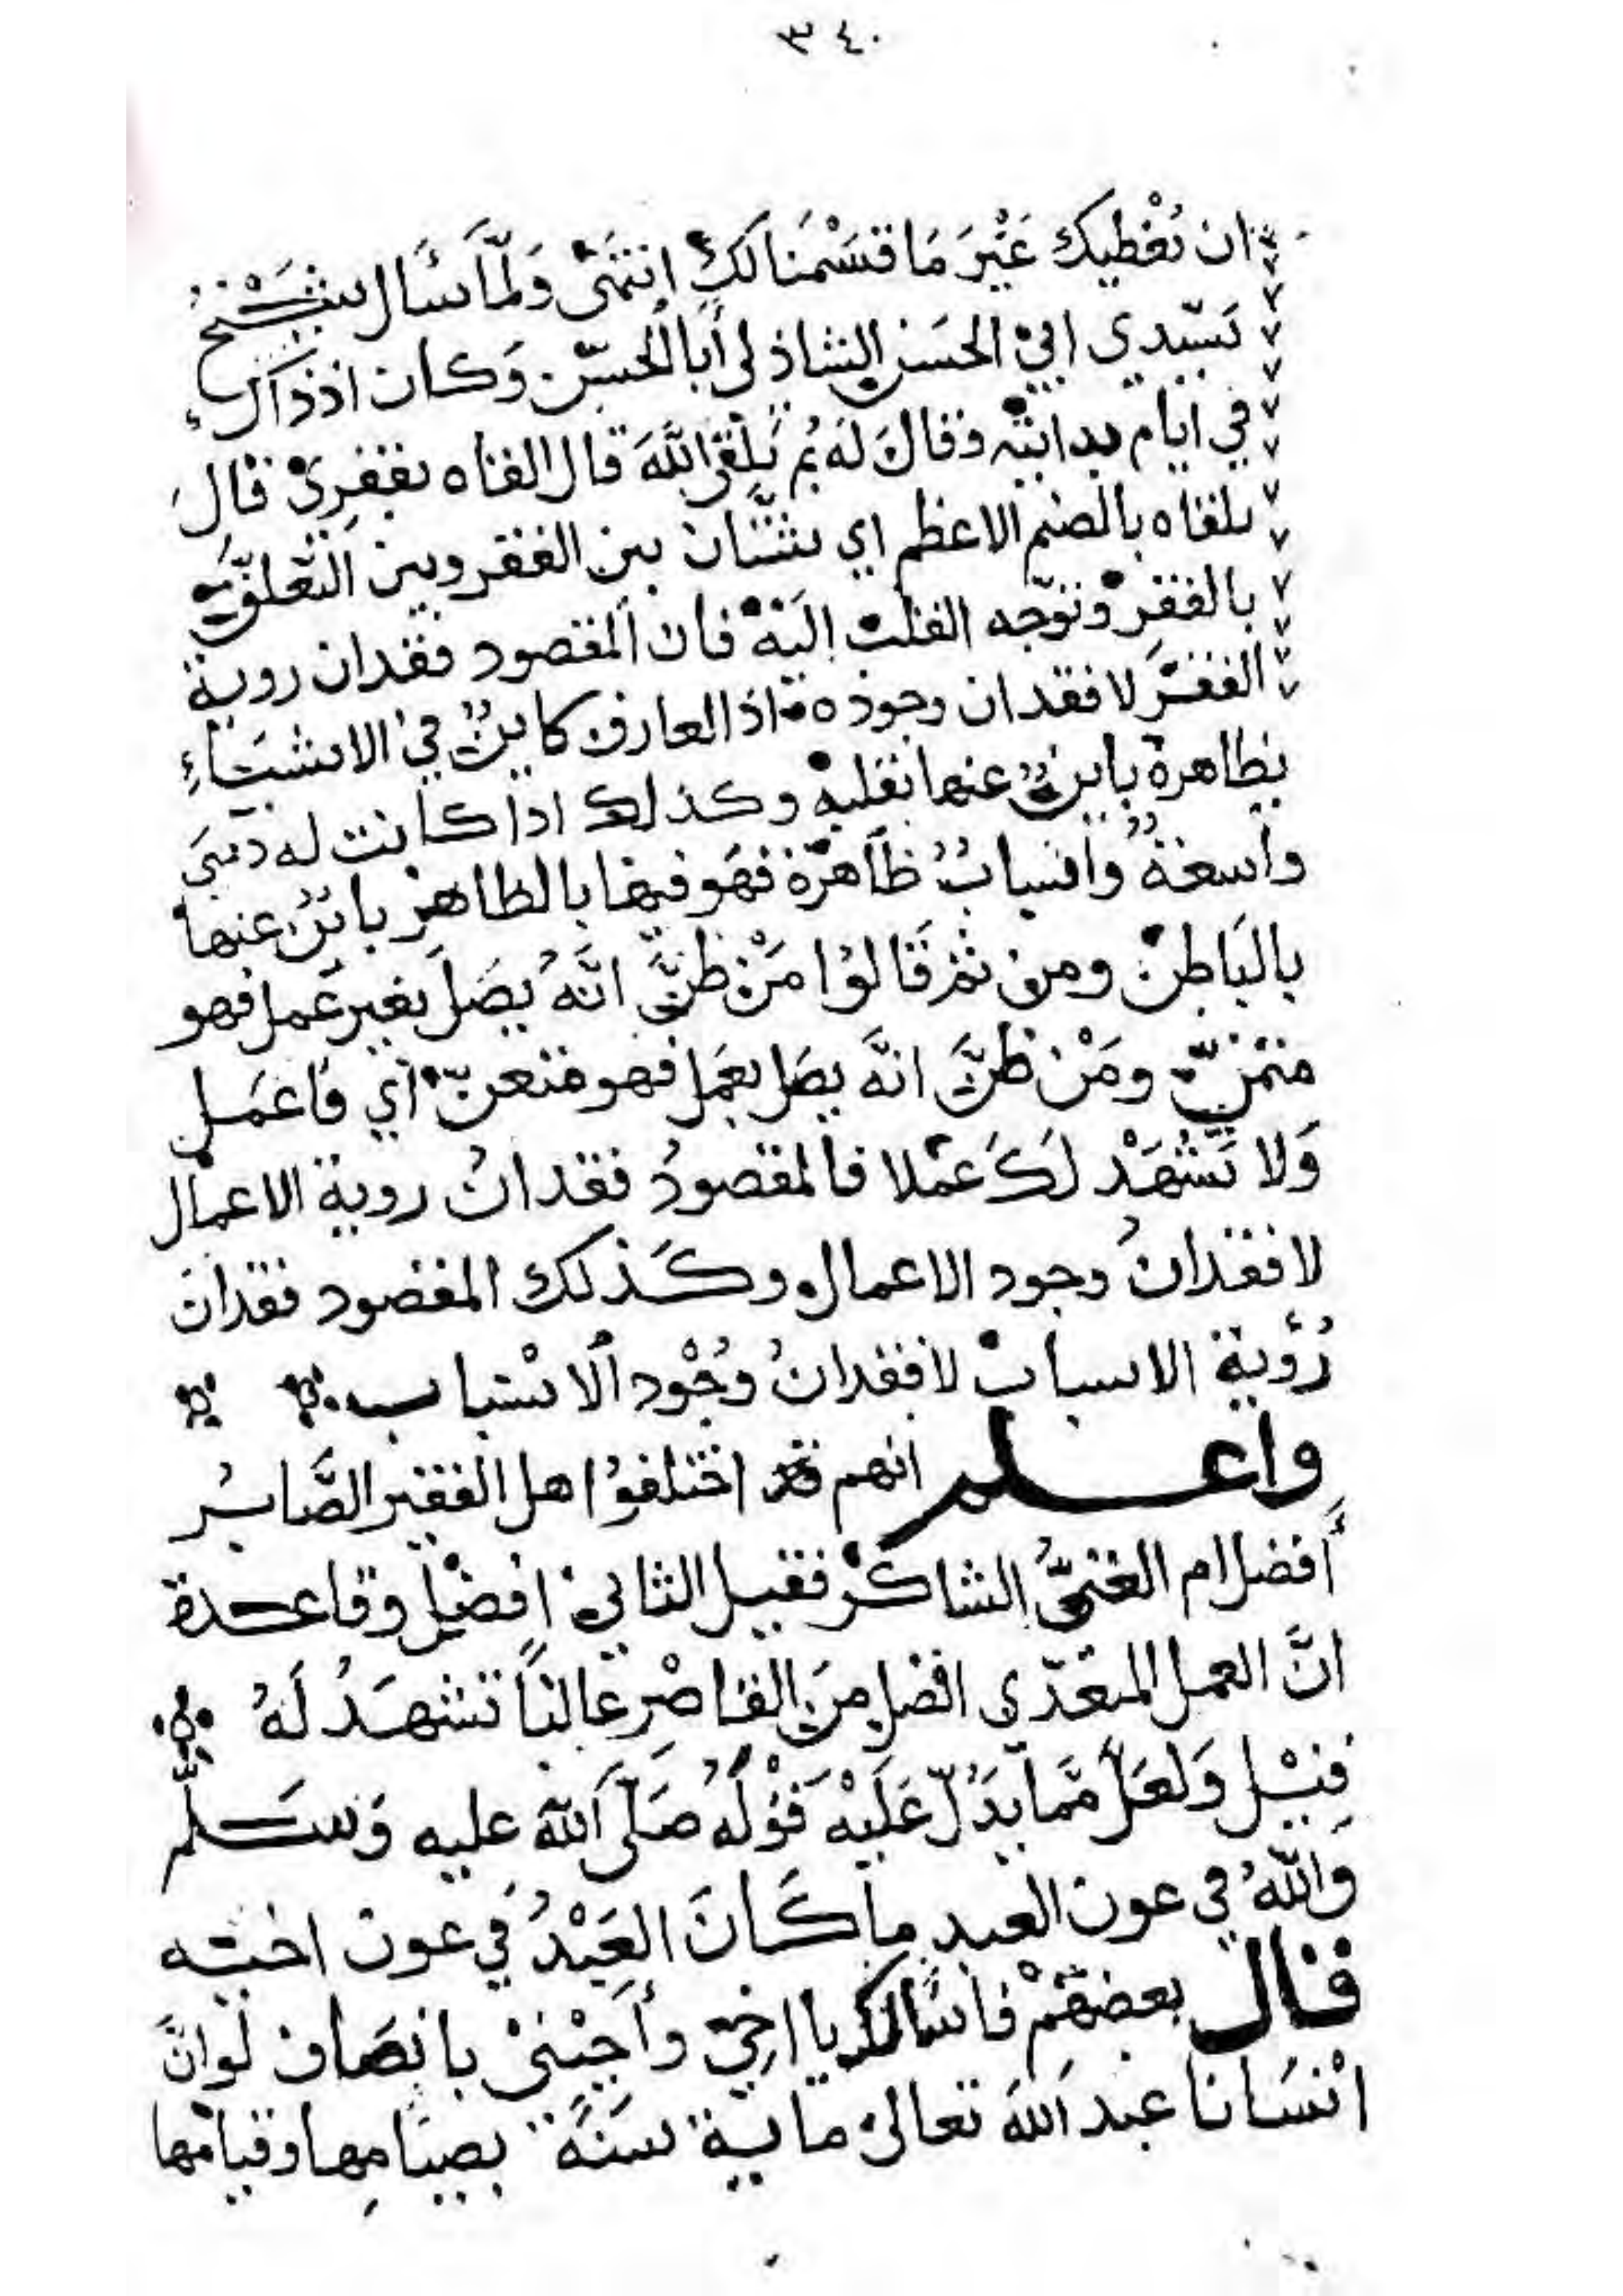 ٣٤٠
ان نُعْطيك غَيْرَ مَا قسَمْنَا لكَ انتهَى وَلمَّا سَأل شَيْخُ
سَيّدي ابي الحسَن الشاذلى أبا الحسَن وَكان اذ ذاك
في ايام بدايته وقالَ لهُ بمَ تَلْقى اللهَ قال القاه بفقرِىْ قالَ
تلقاه بالصنم الاعظم اي شتَّان بين الفقر وبين التعلُّق
بالفقرِ وتوَجه القلب اليْه فان المقصود فقدان روية
الفقرِ لا فقدان وجوده اذ العارف كاينٌ في الاشيَاءِ
بظاهره باينٌ عنها بقلبهِ وكذلك اذا كانت له دنيَى
واسعةٌ واسبابٌ ظاهرة فهوَ فيها بالظاهرِ بائنٌ عنها
بالبَاطن ومن ثم قَالوُا مَنْ ظنَّ انَّهُ يصَل بغير عَمل فهو
متمنٍّ ومَنْ ظنَّ انَّه يصَل بعَمل فهو متعنّ اي فاعمَل
وَلا تَشْهَدْ لكَ عَملا فالمقصودُ فقدانُ روية الاعمال
لا فقدانُ وجود الاعمال وكَذلك المقصود فقدان
رُؤية الاسباب لا فقدانُ وُجُود الاسْباب
واعلم انهم قد اختلفوُا هل الفقير الصَّابرُ
أفضل ام الغنىُّ الشاكرُ فقيل الثاني افضل وقاعدة
انَّ العمل المتعَدّي افضل منَ القاصْرِ غالبًا تشهَدُ لَهُ
قِيْل وَلعَلّ ممَّا يَدُلّ عَلَيْه قَوْلُهُ صَلّى اَللهُ عليه وَسَلَّم
وَاللهُ في عون العبد ما كَانَ العَبْدُ في عون اخيه
قال بعضهُمْ فاسْألك يا اخِي وأجِبْنىْ بانصَاف لوانَّ
انْسَانا عبد اَللهَ تعالىْ ماية سَنَة بصيَامِها وقيامها